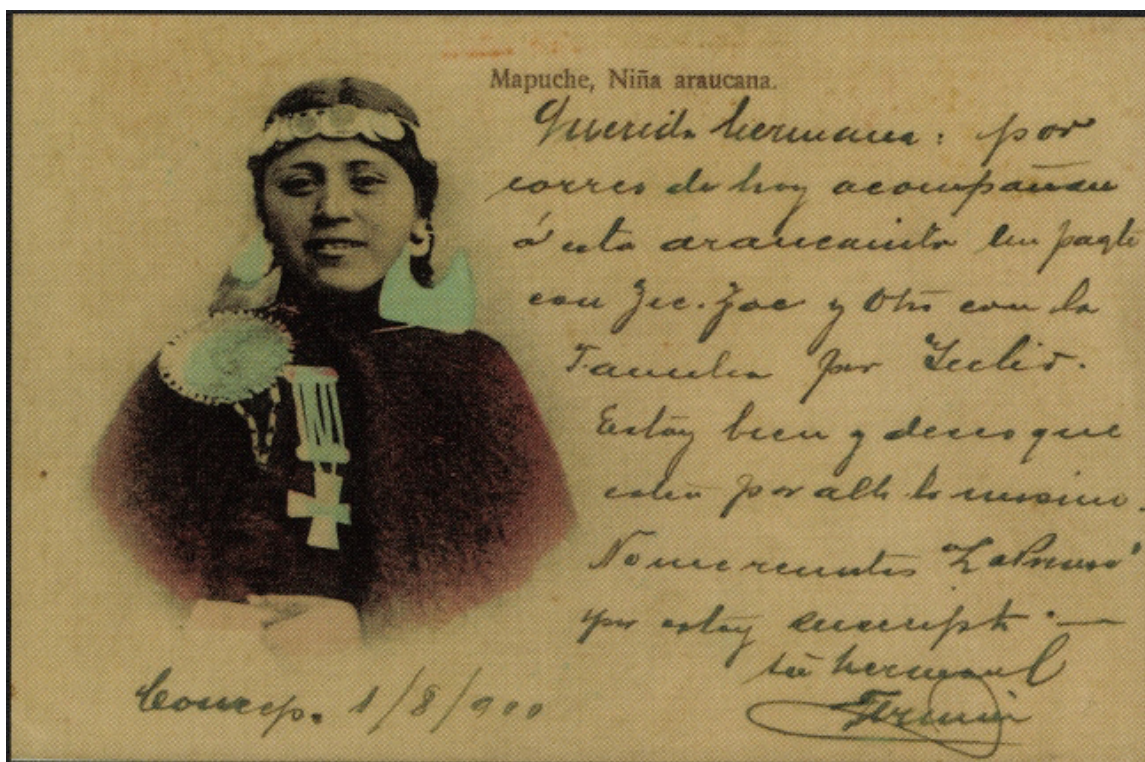 Mapuche, Niña araucana.
Querida hermana: por
correo de hoy acompañan
á esta araucanita un paqte
con Zec. Zac y Otro con la
Familia por
Estoy bien y deseo que
estén por allí lo mismo.
No me remitas "La Prensa"
por estoy suscripto. —
tu hermano
Fermín
Concep. 1/8/900